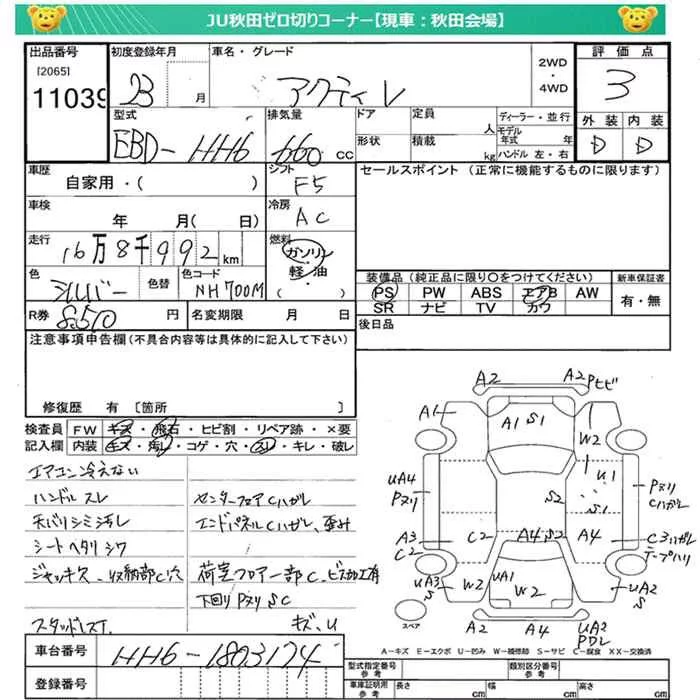 JU秋田ゼロ切りコーナー【現車：秋田会場】
出品番号
[2065]
11039
初度登録年月
23 月
車名・グレード
アクティ V
2WD
・
4WD
評価点
3
外装 内装
D D
型式
EBD-HH6
排気量
660 cc
ドア
形状
定員 人
積載 kg
ディーラー・並行
モデル年式 年
ハンドル 左・右
車歴
自家用・( )
シフト
F5
セールスポイント (正常に機能するものに限ります)
車検
年 月( 日)
冷房
AC
走行
16万8千992 km
燃料
ガソリン
軽・油
( )
色
シルバー
色替
色コード
NH700M
装備品 (純正品に限り〇をつけてください)
PS PW ABS エアB AW
SR ナビ TV カワ
新車保証書
有・無
R券
8510 円
名変期限 月 日
後日品
注意事項申告欄(不具合内容等は具体的に記入して下さい)
修復歴 有 [箇所 ]
検査員
記入欄
FW キズ・飛石・ヒビ割・リペア跡・×要
内装 キズ・汚レ・コゲ・穴・スレ・キレ・破レ
エアコン冷えない
ハンドルスレ
天バリシミ汚レ
シートヘタリシワ
ジャッキス、収納部C穴
スタッドレスT.
センターフロアCハガレ
エンドパネルCハガレ、歪み
荷室フロア一部C、ビス加工有
下回りPヌリSC
キズ、U
A2
A2 Pヒビ
A1
A1 S1
W2
U1
UA4
Pヌリ
S2
S1
Pヌリ
Cハガレ
A3
C2
C2
A4 S2
A4
C3ハガレ
テープハリ
UA3
S
W2
UA1
W2
W2
UA2
S
スペア
A2
A4
UA2
PDL
A－キズ E－エクボ U－凹み W－補修跡 S－サビ C－腐食 XX－交換済
車台番号
HH6-1803174
登録番号
型式指定番号
参考
類別区分番号
参考
車体証明用
参考
長さ cm
幅 cm
高さ cm